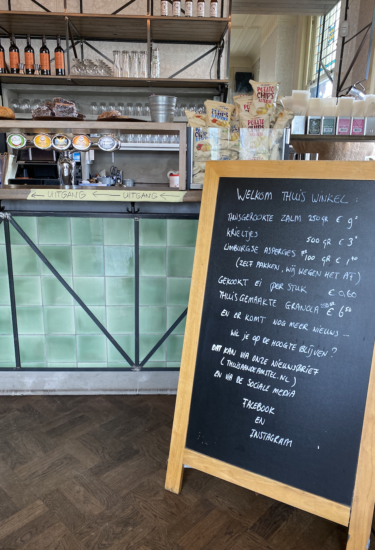 ← UITGANG ← UITGANG ←
POTATO CHIPS
WELKOM THUIS WINKEL
THUISGEROOKTE ZALM 250 gr € 9
KRIELTJES 500 gr € 3
LIMBURGSE ASPERGES 100 gr € 1
(ZELF PAKKEN, WIJ WEGEN HET AF)
GEKOOKT EI PER STUK € 0,60
THUIS GEMAAKTE GRANOLA € 6
EN ER KOMT NOG MEER NIEUWS —
WIL JE OP DE HOOGTE BLIJVEN?
DAT KAN VIA ONZE NIEUWSBRIEF
(THUISAANDEAMSTEL.NL)
EN VIA DE SOCIALE MEDIA
FACEBOOK
EN
INSTAGRAM